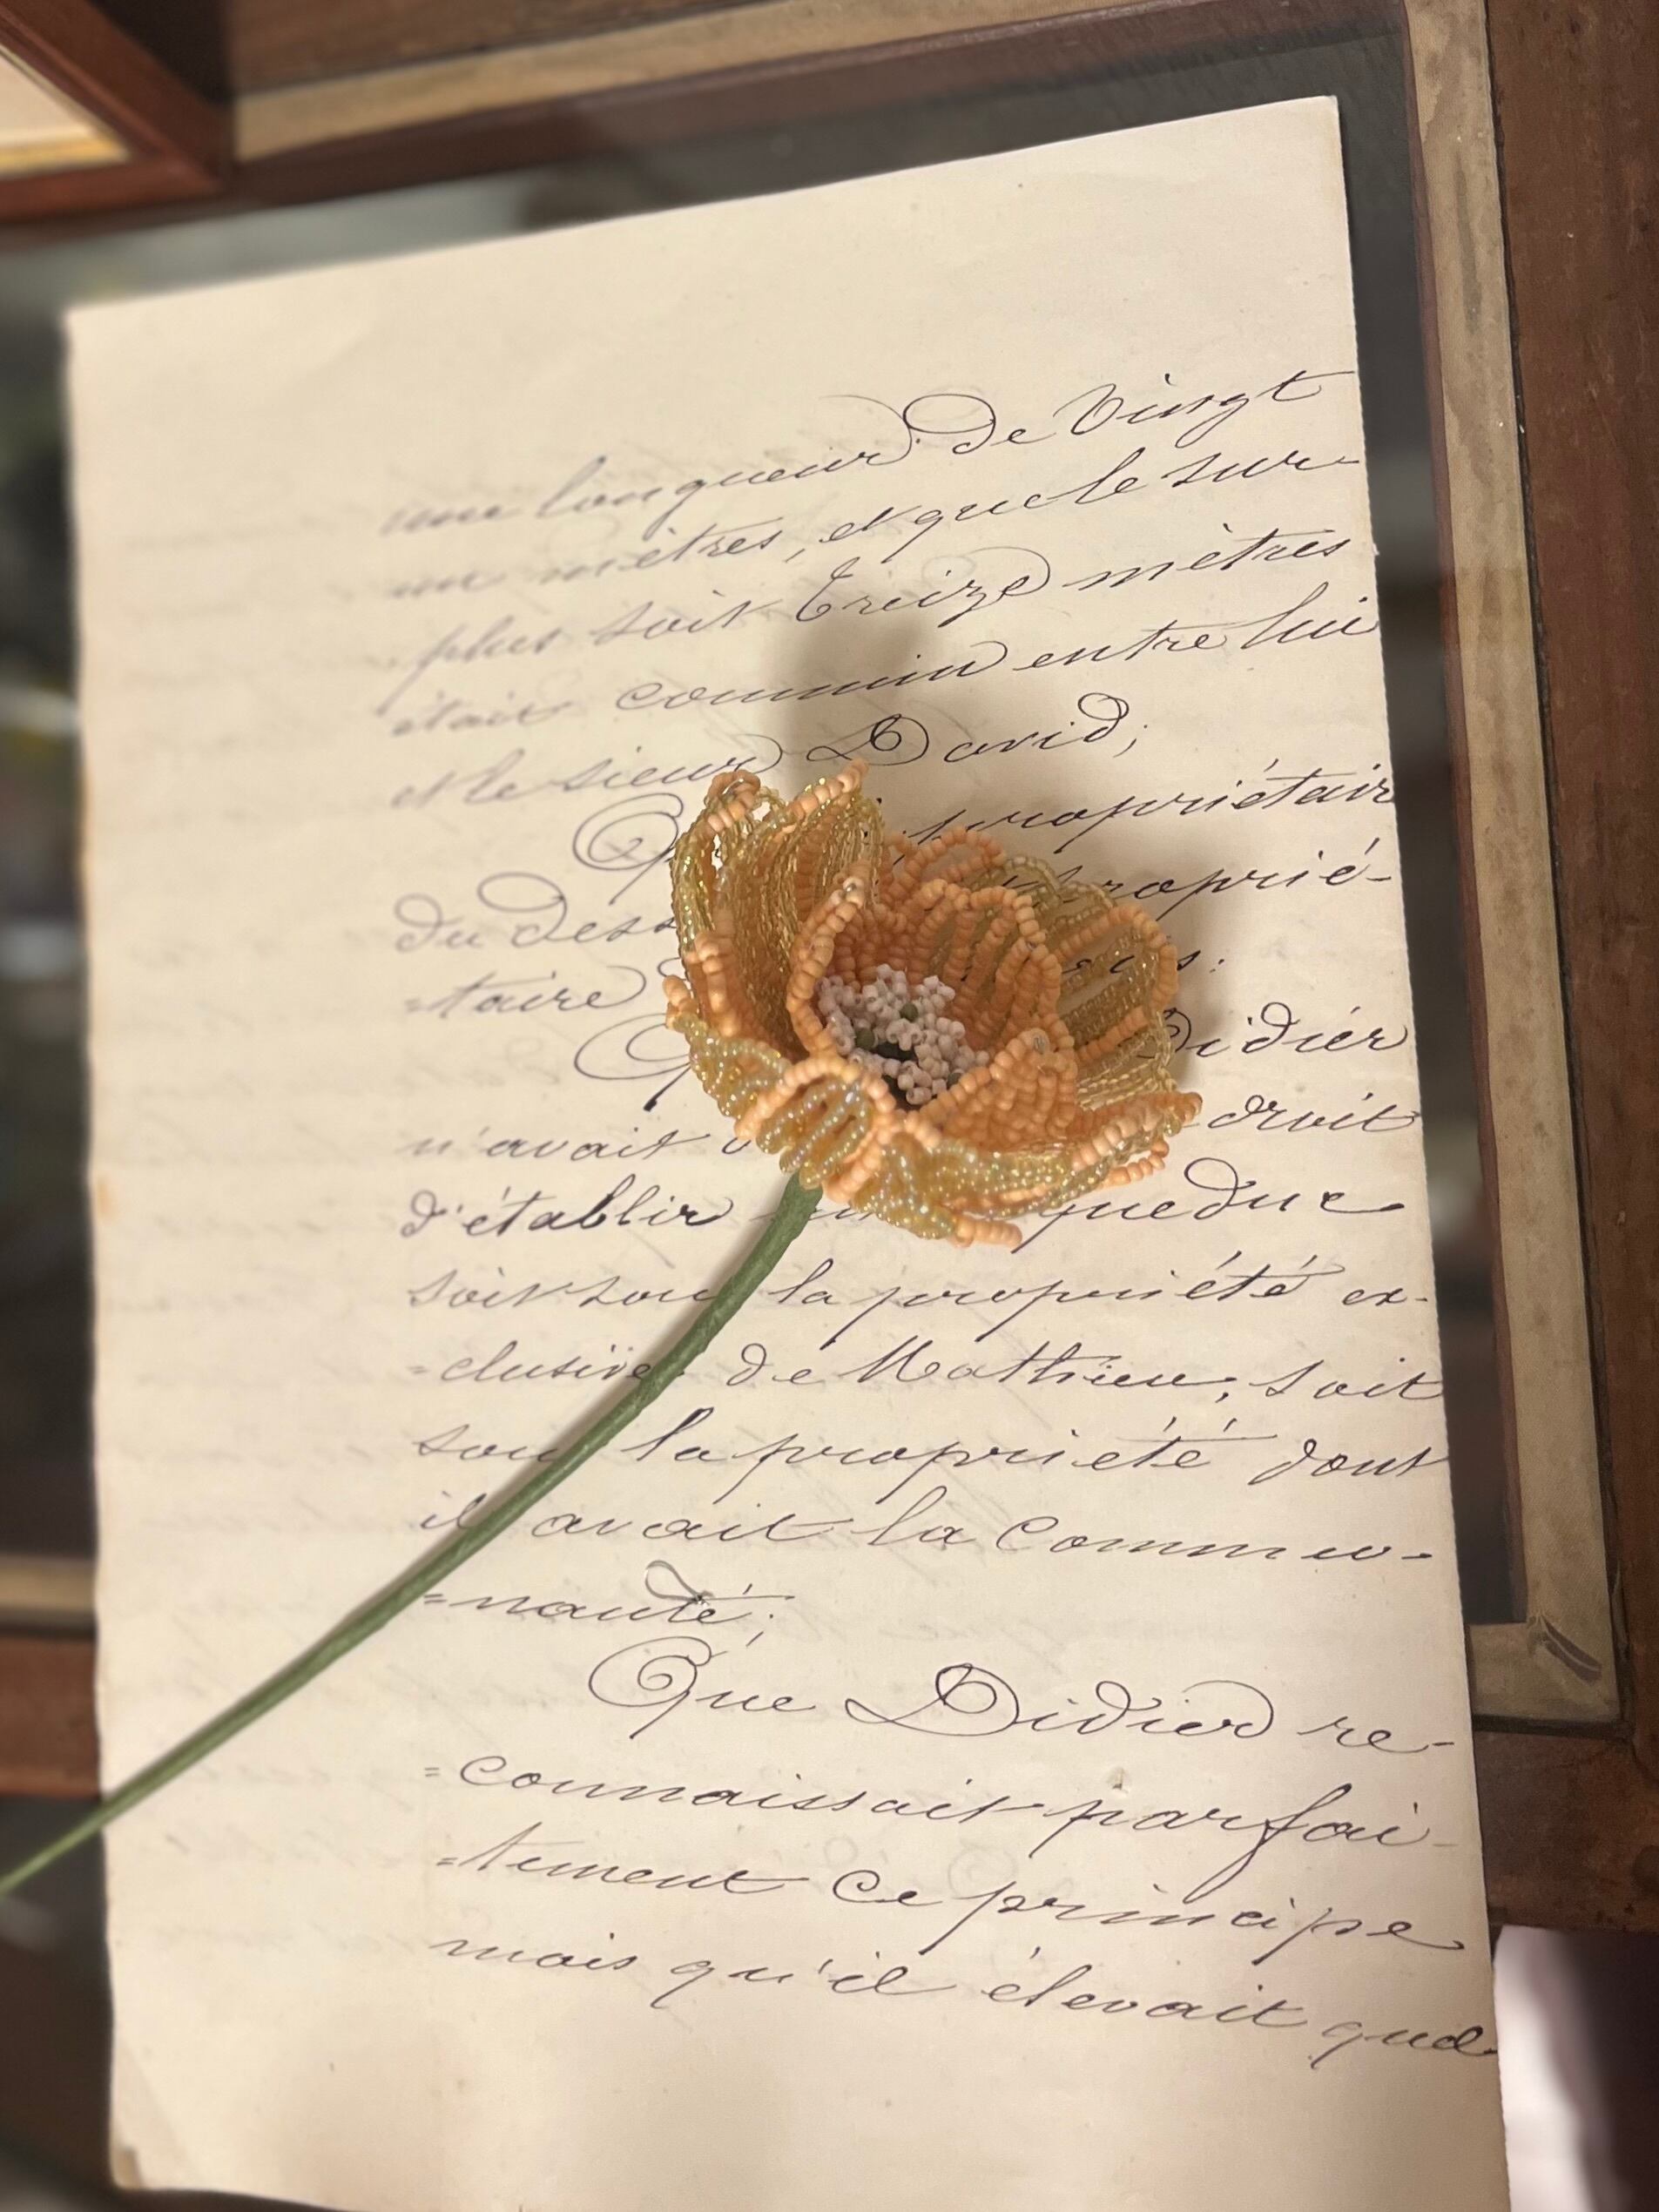 une longueur de Vingt
un mètres, et que le sur-
plus soit Treize mètres
était commun entre lui
et le sieur David;
propriétair
du dess proprié-
=taire
Didier
n'avait droit
d'établir queduc
soit sous la propriété ex-
=clusive de Mathieu, soit
sous la propriété dont
il avait la commu-
=nauté;
Que Didier re-
=connaissait parfai-
=tement ce principe
mais qu'il élevait quel-